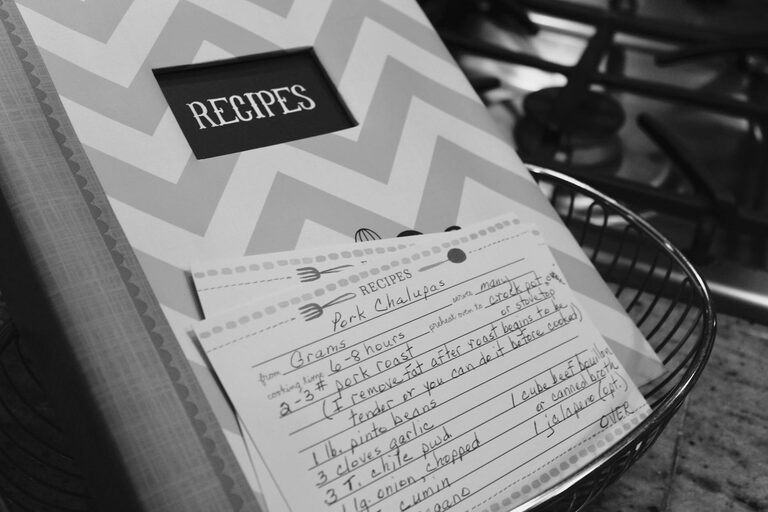 RECIPES
RECIPES
Pork Chalupas
from Grams serves many
cooking time 6-8 hours preheat oven to crock pot
or stove top
2-3# pork roast
(I remove fat after roast begins to be
tender or you can do it before cooked)
1 lb. pinto beans
3 cloves garlic 1 cube beef bouillon
3 T. chile pwd or canned broth
1 lg. onion, chopped 1 jalapeno (opt.)
cumin
OVER